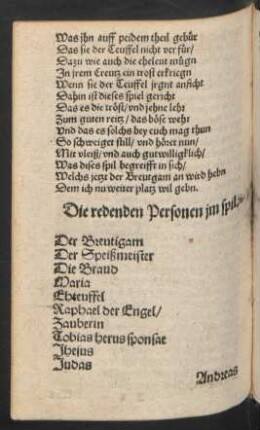 Was jhn auff peidem theil gebür
Das sie der Teuffel nicht ver für/
Dazu wie auch die eheleut mügn
In jrem Creutz ein trost erkriegn
Wenn sie der Teuffel jrgnt anficht
Dahin ist dieses spiel gericht
Das es die tröst/ vnd jehne lehr
Zum guten reitz/ das böse wehr
Vnd das es solchs bey euch mag thun
So schweiget still/ vnd höret nun/
Mit vleiß/ vnd auch gutwilligklich/
Was dises spil begreifft in sich/
Welchs jetzt der Breutgam an wird hebn
Dem ich nu weiter platz wil gebn.
Die redenden Personen jm spil.
Der Breutigam
Der Speißmeister
Die Braud
Maria
Ehteuffel
Raphael der Engel/
Zauberin
Tobias herus sponsae
Jhesus
Judas
Andreas